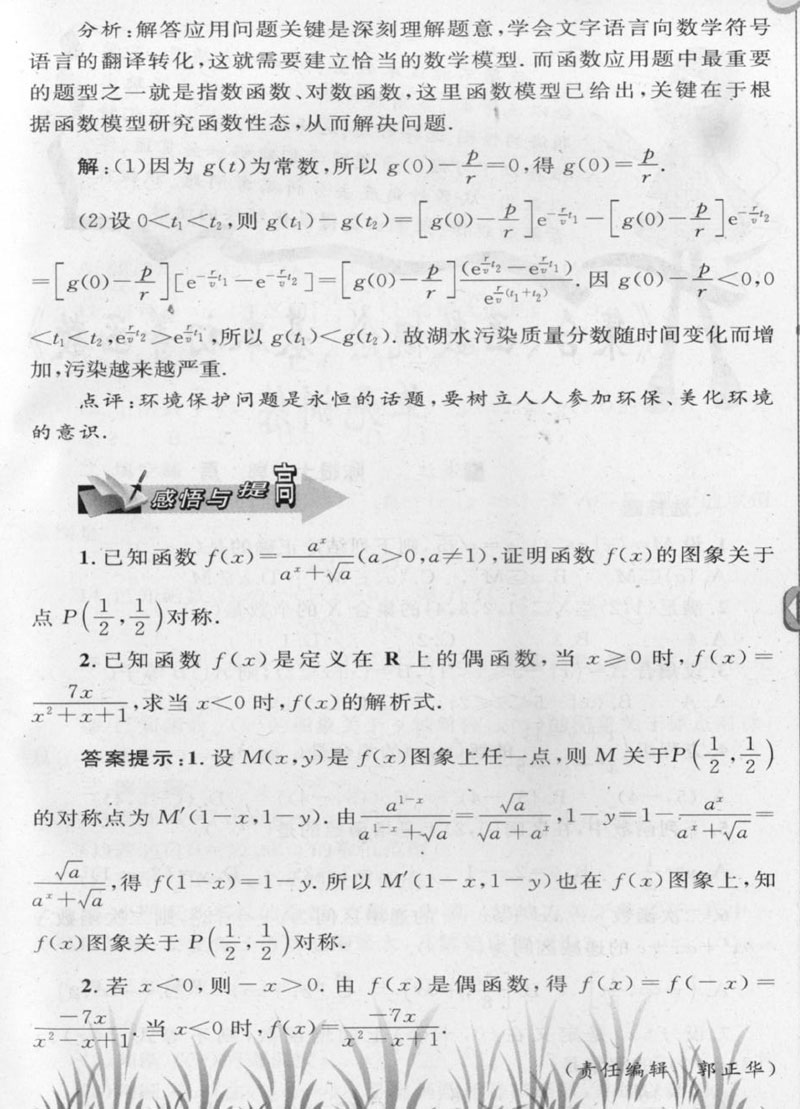 分析:解答应用问题关键是深刻理解题意,学会文字语言向数学符号
语言的翻译转化,这就需要建立恰当的数学模型. 而函数应用题中最重要
的题型之一就是指数函数、对数函数,这里函数模型已给出,关键在于根
据函数模型研究函数性态,从而解决问题.
解:(1)因为 g(t)为常数,所以 g(0)－p/r＝0,得 g(0)＝p/r.
(2)设 0<t₁<t₂,则 g(t₁)－g(t₂)＝[g(0)－p/r]e^(－(r/v)t₁)－[g(0)－p/r]e^(－(r/v)t₂)
＝[g(0)－p/r][e^(－(r/v)t₁)－e^(－(r/v)t₂)]＝[g(0)－p/r](e^((r/v)t₂)－e^((r/v)t₁))/e^((r/v)(t₁+t₂)). 因 g(0)－p/r<0,0
<t₁<t₂,e^((r/v)t₂)>e^((r/v)t₁),所以 g(t₁)<g(t₂). 故湖水污染质量分数随时间变化而增
加,污染越来越严重.
点评:环境保护问题是永恒的话题,要树立人人参加环保、美化环境
的意识.
感悟与提高
1. 已知函数 f(x)＝a^x/(a^x+√a)(a>0,a≠1),证明函数 f(x)的图象关于
点 P(1/2,1/2)对称.
2. 已知函数 f(x)是定义在 R 上的偶函数,当 x≥0 时,f(x)＝
7x/(x²+x+1),求当 x<0 时,f(x)的解析式.
答案提示:1. 设 M(x,y)是 f(x)图象上任一点,则 M 关于P(1/2,1/2)
的对称点为 M′(1－x,1－y). 由 a^(1－x)/(a^(1－x)+√a)＝√a/(√a+a^x),1－y＝1－a^x/(a^x+√a)＝
√a/(a^x+√a),得 f(1－x)＝1－y. 所以 M′(1－x,1－y)也在 f(x)图象上,知
f(x)图象关于 P(1/2,1/2)对称.
2. 若 x<0,则－x>0. 由 f(x)是偶函数,得 f(x)＝f(－x)＝
－7x/(x²－x+1). 当 x<0 时,f(x)＝－7x/(x²－x+1).
(责任编辑 郭正华)